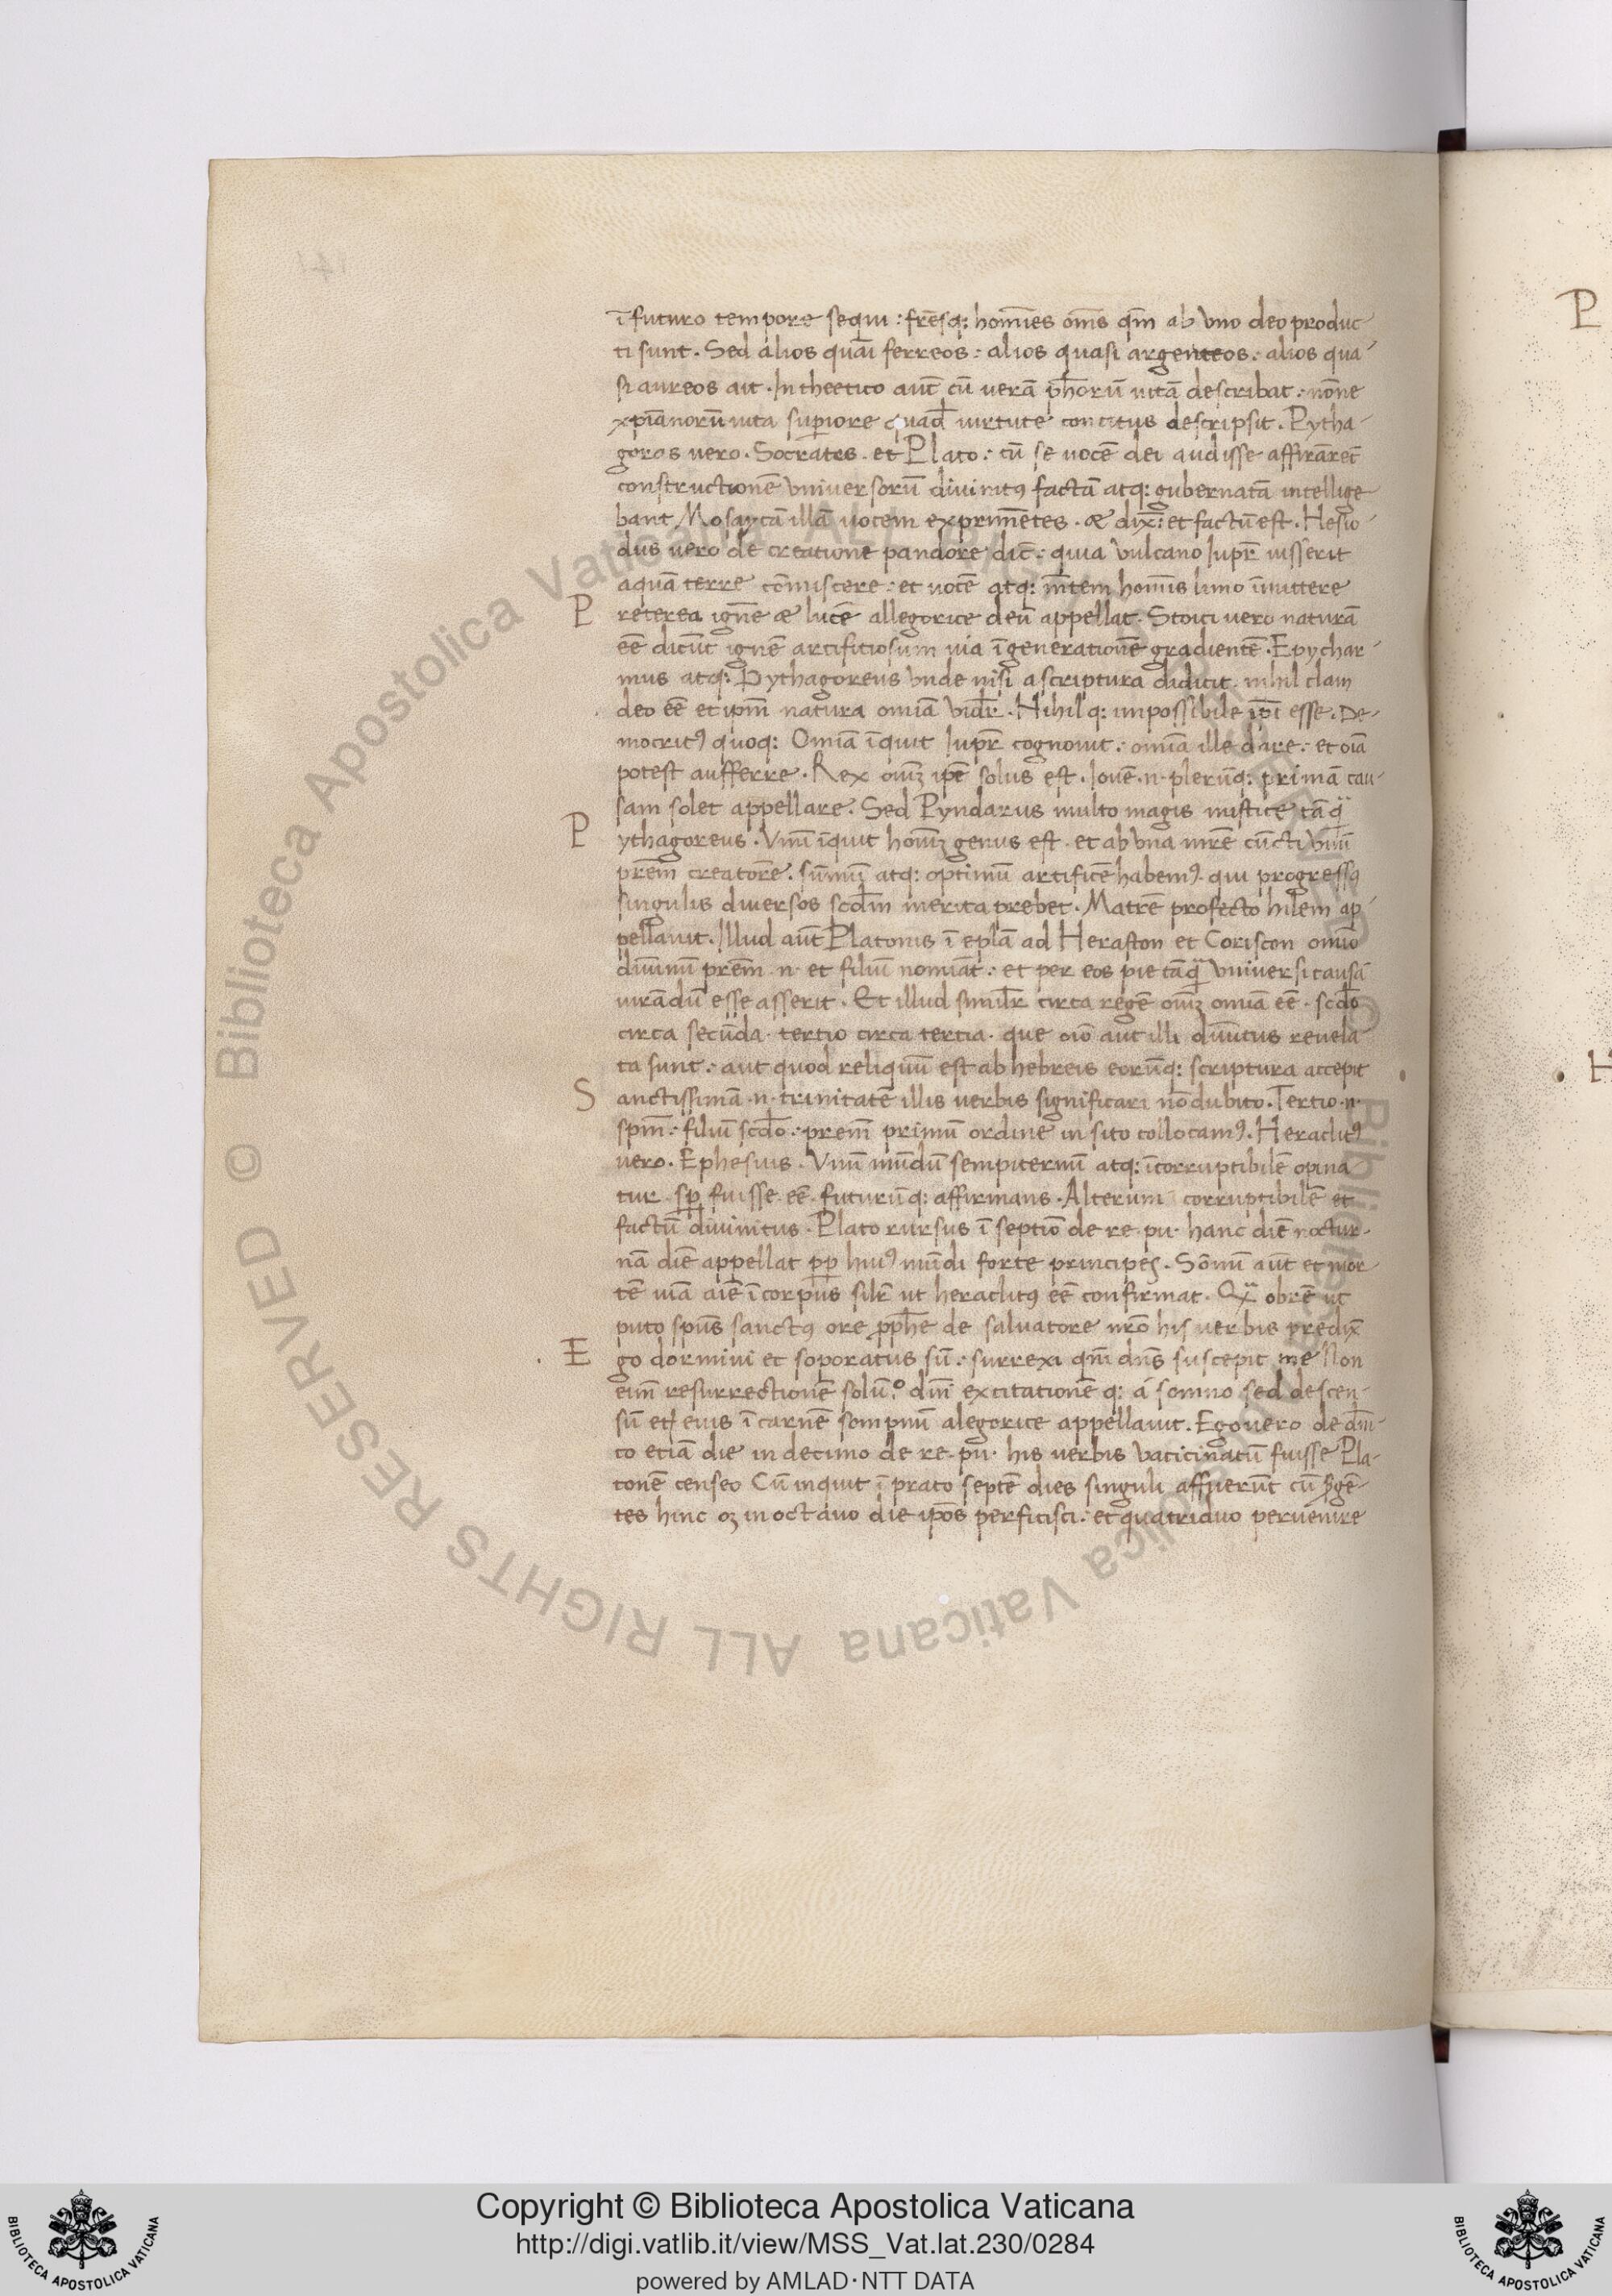 ī futuro tempore sequi : frēsq; homīes om̄s qm̄ ab vno deo produc-
ti sunt . Sed alios quasi ferreos : alios quasi argenteos : alios qua-
si aureos ait . In theetico aut̄ cū uerā ph̄orū uitā describat : nōne
xp̄ianorū uita superiore quad̄ uirtute concitus descripsit . Pytha-
goras uero . Socrates . et Plato : cū se uocē dei audisse affirārēt
constructionē vniuersorū diuinitꝰ factā atq; gubernatā intellige-
bant Mosaycā illā uocem exprimētes . & dix̄ : et factū est . Hesio-
dus uero de creatione pandore dic̄ : quia vulcano Iupr̄ iusserit
aquā terre cōmiscere : et uocē atq; mētem homīs limo īmittere
P reterea ignē & lucē allegorice deū appellat . Stoici uero naturā
eē dicūt ignē artifitiosum uia ī generationē gradientē . Epychar-
mus atq; Pythagoreus vnde nisi a scriptura didicit . nihil clam
deo eē et ipm̄ natura omīa vider̄ . Nihil q; impossibile ip̄i esse . De-
mocritꝰ quoq; Omīa īquit Iupr̄ cognouit : omīa ille dare : et oīa
potest aufferre . Rex omīuꝫ ip̄e solus est . Iouē .n. plerūq; primā cau-
sam solet appellare . Sed Pyndarus multo magis mistice tāq̄
P ythagoreus . Vnū īquit homīuꝫ genus est . et ab vna mr̄e cūcti vnū
prēm creatorē . sūmuꝫ atq; optimū artificē habemꝰ . qui progressꝰ
singulis diuersos scd̄m merita prebet . Matrē profecto hilem ap-
pellauit . Illud aūt Platonis ī epl̄a ad Heraston et Coriscon omīo
diuinū prēm .n. et filiū nomīat : et per eos pie tāq̄ vniuersi causā
iurādū esse asserit . Et illud similr̄ circa regē omīuꝫ omīa eē . scd̄o
circa secūda . tertio circa tertia . que oīo aut illi diuītus reuela
ta sunt : aut quod reliquū est ab hebreis eorūq; scriptura accepit
S anctissimā .n. trinitatē illis uerbis significari nō dubito . Tertio .n.
spm̄ : filiū scd̄o : prēm primū ordine in sito collocamꝰ . Heraclitꝰ
uero . Ephesius . Vnū mūdū sempiternū atq; īcorruptibilē opina
tur . sp̄ fuisse . eē . futurūq; affirmans . Alterum corruptibilē et
factū diuinitus . Plato rursus ī septīo de re . pu . hanc diē noctur-
nā diē appellat pp̄ huiꝰ mūdi forte principes . Sōnū aūt et mor
tē uiā aīe ī corpus silr̄ ut heraclitꝰ eē confirmat . Qꝛ̄ obrē ut
puto spūs sanctꝰ ore pp̄he de saluatore nr̄o his uerbis predix̄
E go dormiui et soporatus sū : surrexi qm̄ dn̄s suscepit me Non
eim̄ resurrectionē solū dn̄i excitationē q; a somno sed descen-
sū et eius ī carnē sompnū alegorice appellauit . Ego uero de dn̄i-
co etiā die in decimo de re . pu . his uerbis vaticinatū fuisse Pla-
tonē censeo Cū inquit ī prato septē dies singuli affuerūt cū ꝑgē-
tes hinc oꝫ in octauo die ip̄os perficisci : et quatriduo peruenire
Copyright © Biblioteca Apostolica Vaticana
http://digi.vatlib.it/view/MSS_Vat.lat.230/0284
powered by AMLAD·NTT DATA